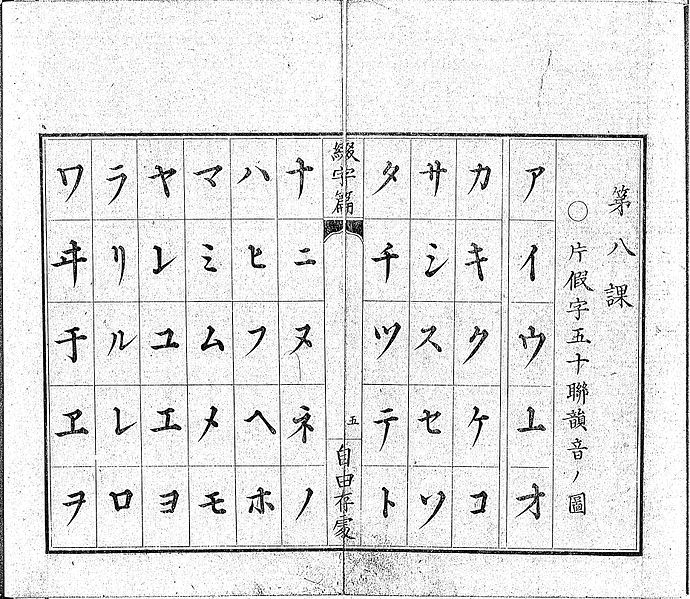 第八課
○片假字五十聯韻音ノ圖
アイウ𛀀オ
カキクケコ
サシスセソ
タチツテト
綴字篇 五 自由存處
ナニヌネノ
ハヒフヘホ
マミムメモ
ヤ𛄠ユエヨ
ラリルレロ
ワヰ𛄢ヱヲ